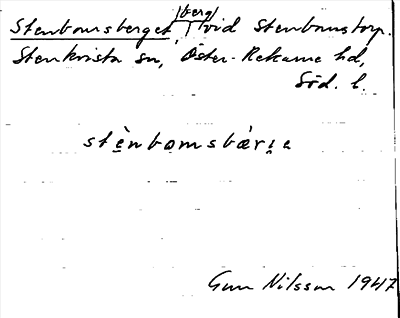 Stenbomsberget, berg vid Stenbomstorp.
Stenkvista sn, Öster-Rekarne hd,
Söd. l.
stènbomsbær̀ɪ̣e
Gun Nilsson 1947